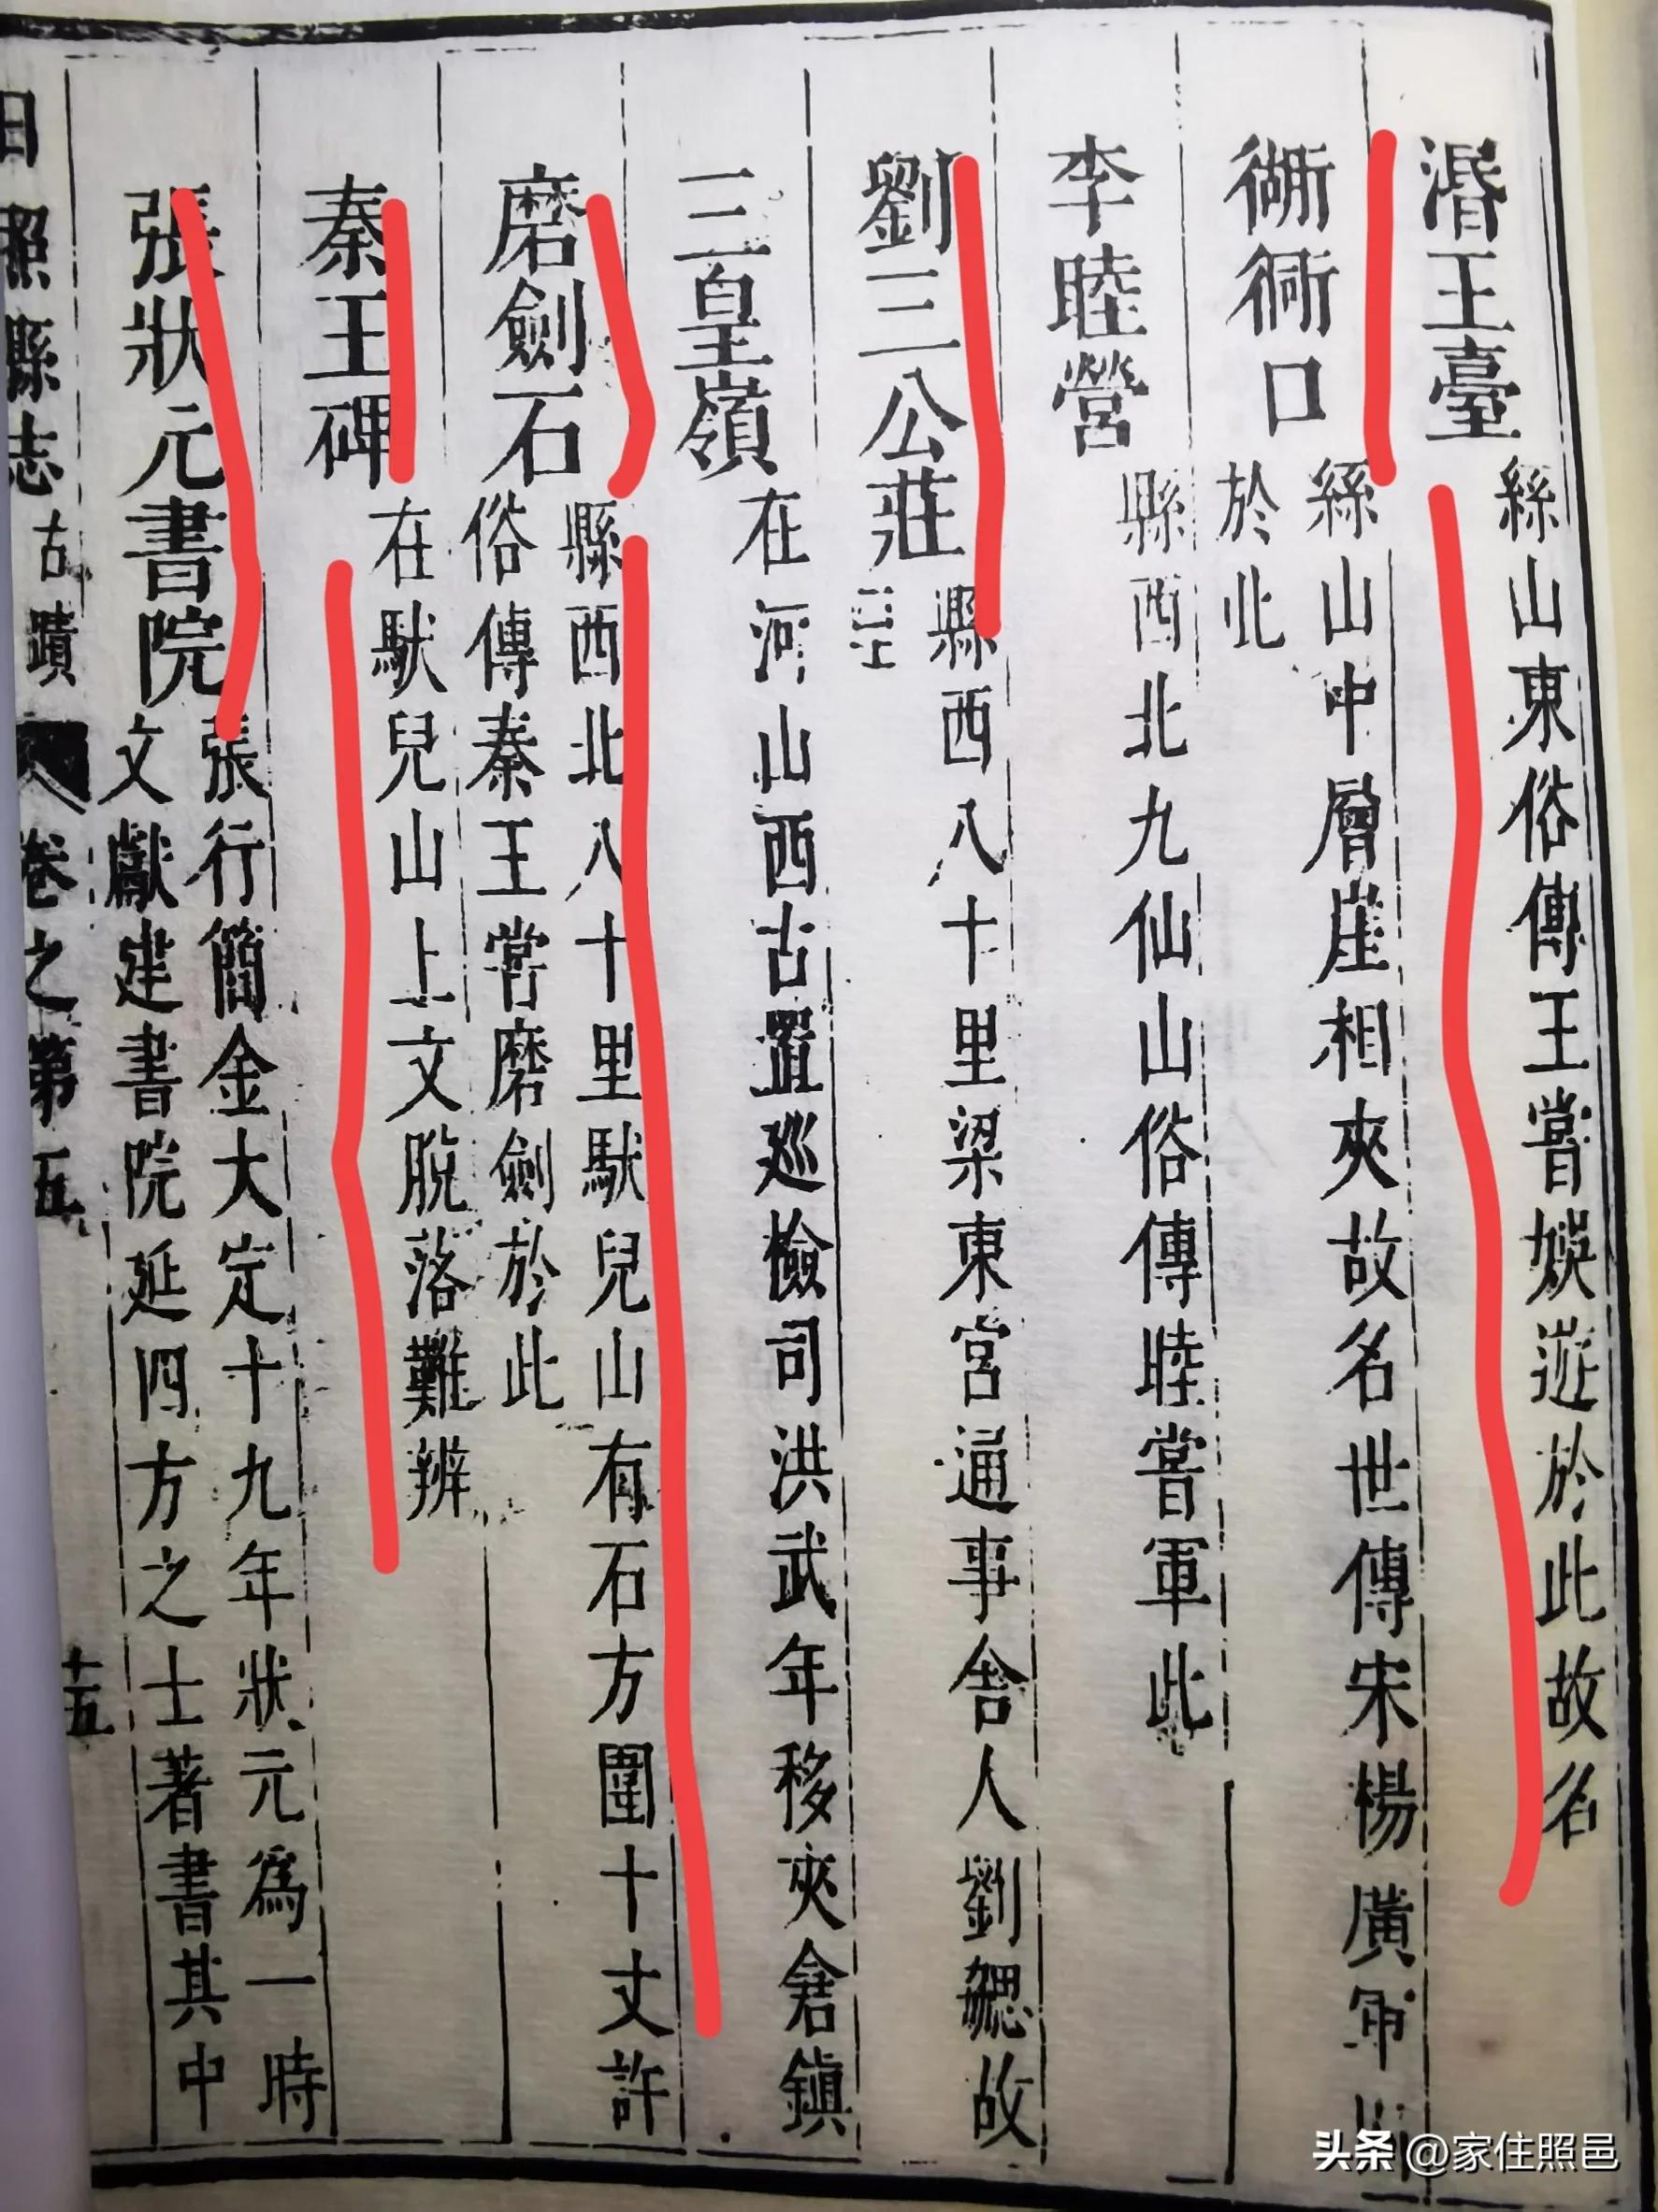 湣王臺
絲山東俗傳王嘗娛遊於此故名
衚衕口
絲山中層崖相夾故名世傳宋楊廣軍
於此
李睦營
縣西北九仙山俗傳睦嘗軍此
劉三公莊
縣西八十里梁東宮通事舍人劉勰故
三皇嶺
在河山西古置巡檢司洪武年移夾倉鎮
磨劍石
縣西北八十里馱兒山有石方圍十丈許
俗傳秦王嘗磨劍於此
秦王碑
在馱兒山上文脫落難辨
張狀元書院
張行簡金大定十九年狀元為一時
文獻建書院延四方之士著書其中
日照縣志 古蹟 卷之第五 十五
头条 @家住照邑